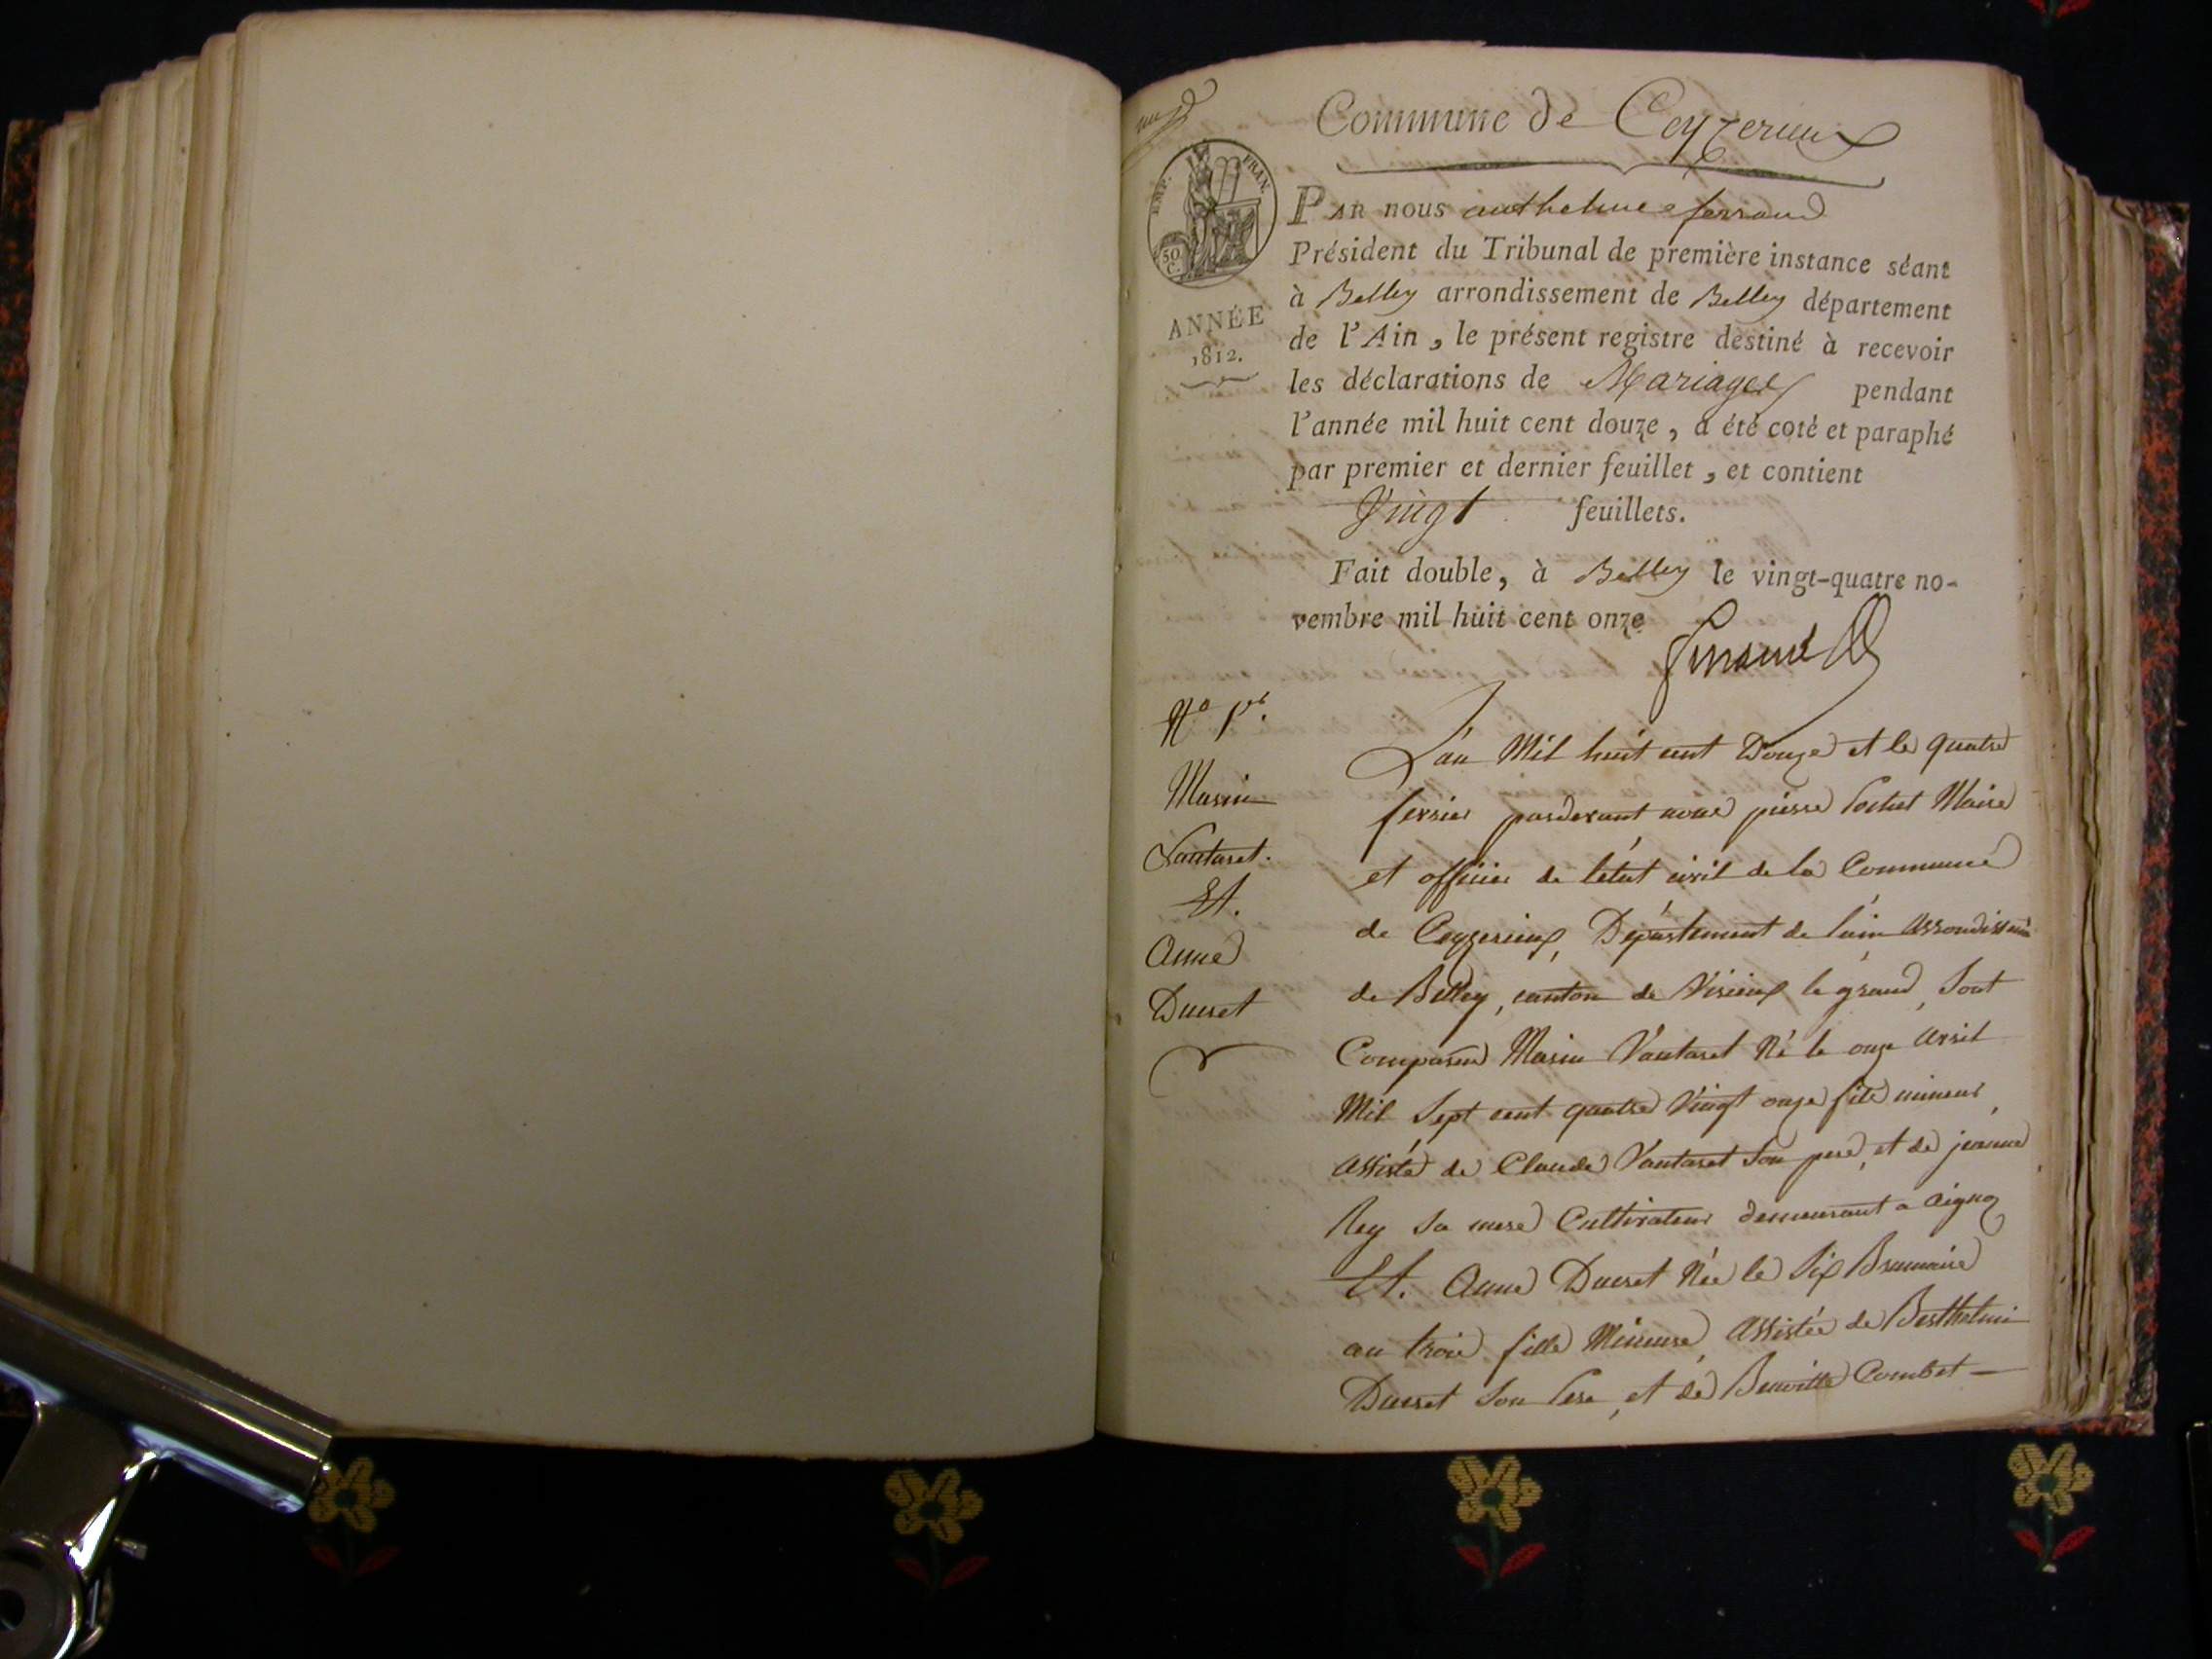 Commune de Ceyzerieux
EMP. FRAN.
50
C.
ANNÉE
1812.
PAR nous anthelme ferrand
Président du Tribunal de première instance séant
à Belley arrondissement de Belley département
de l'Ain, le présent registre destiné à recevoir
les déclarations de Mariages pendant
l'année mil huit cent douze, a été coté et paraphé
par premier et dernier feuillet, et contient
Vingt feuillets.
Fait double, à Belley le vingt-quatre no-
vembre mil huit cent onze
N° 1er.
Marin
Vautaret.
Et.
Anne
Ducret
L'an Mil huit cent Douze et le quatre
fevrier pardevant nous pierre Pochet Maire
et officier de l'état civil de la Commune
de Ceyzerieux, Département de l'ain arrondissem
de Belley, canton de Virieux le grand, Sont
Comparus Marin Vautaret Né le onze avril
Mil Sept cent quatre Vingt onze fils mineur,
assisté de Claude Vautaret Son pere, et de jeanne
Rey Sa mere Cultivateur demeurant a aignoz
Et. Anne Ducret Née le Six Brumaire
an trois fille Mineure, assistée de Berthelmi
Ducret Son Pere, et de Combet